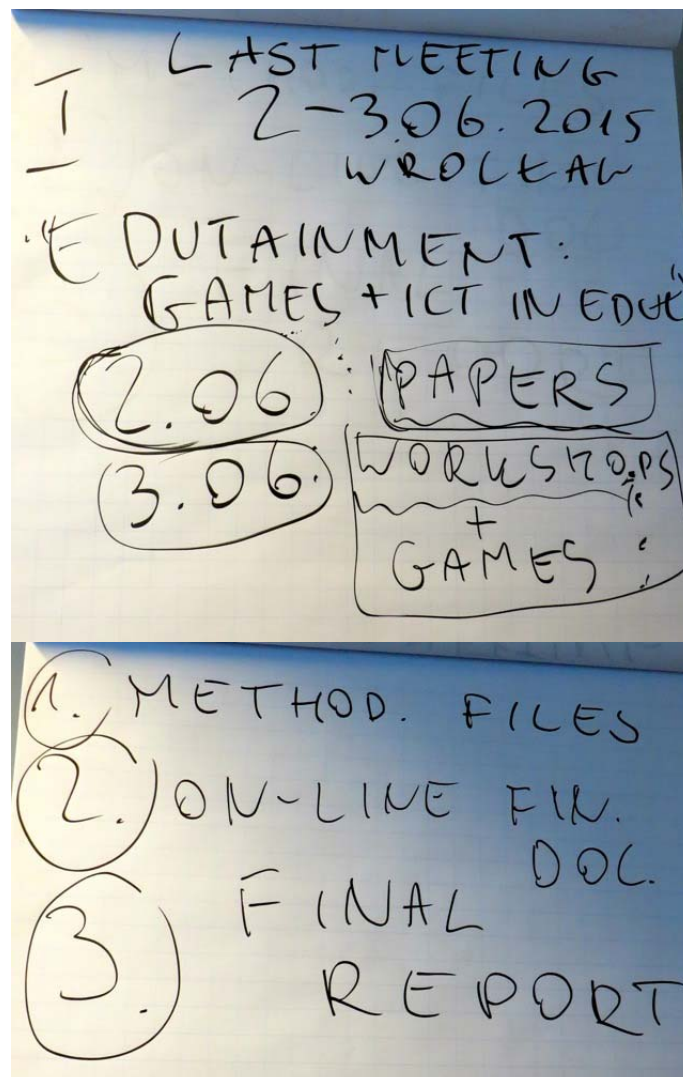 I LAST MEETING
2-3.06.2015
WROCŁAW
"EDUTAINMENT:
GAMES + ICT IN EDU"
2.06 : PAPERS
3.06. WORKSHOPS
+
GAMES
1. METHOD. FILES
2. ON-LINE FIN.
DOC.
3. FINAL
REPORT